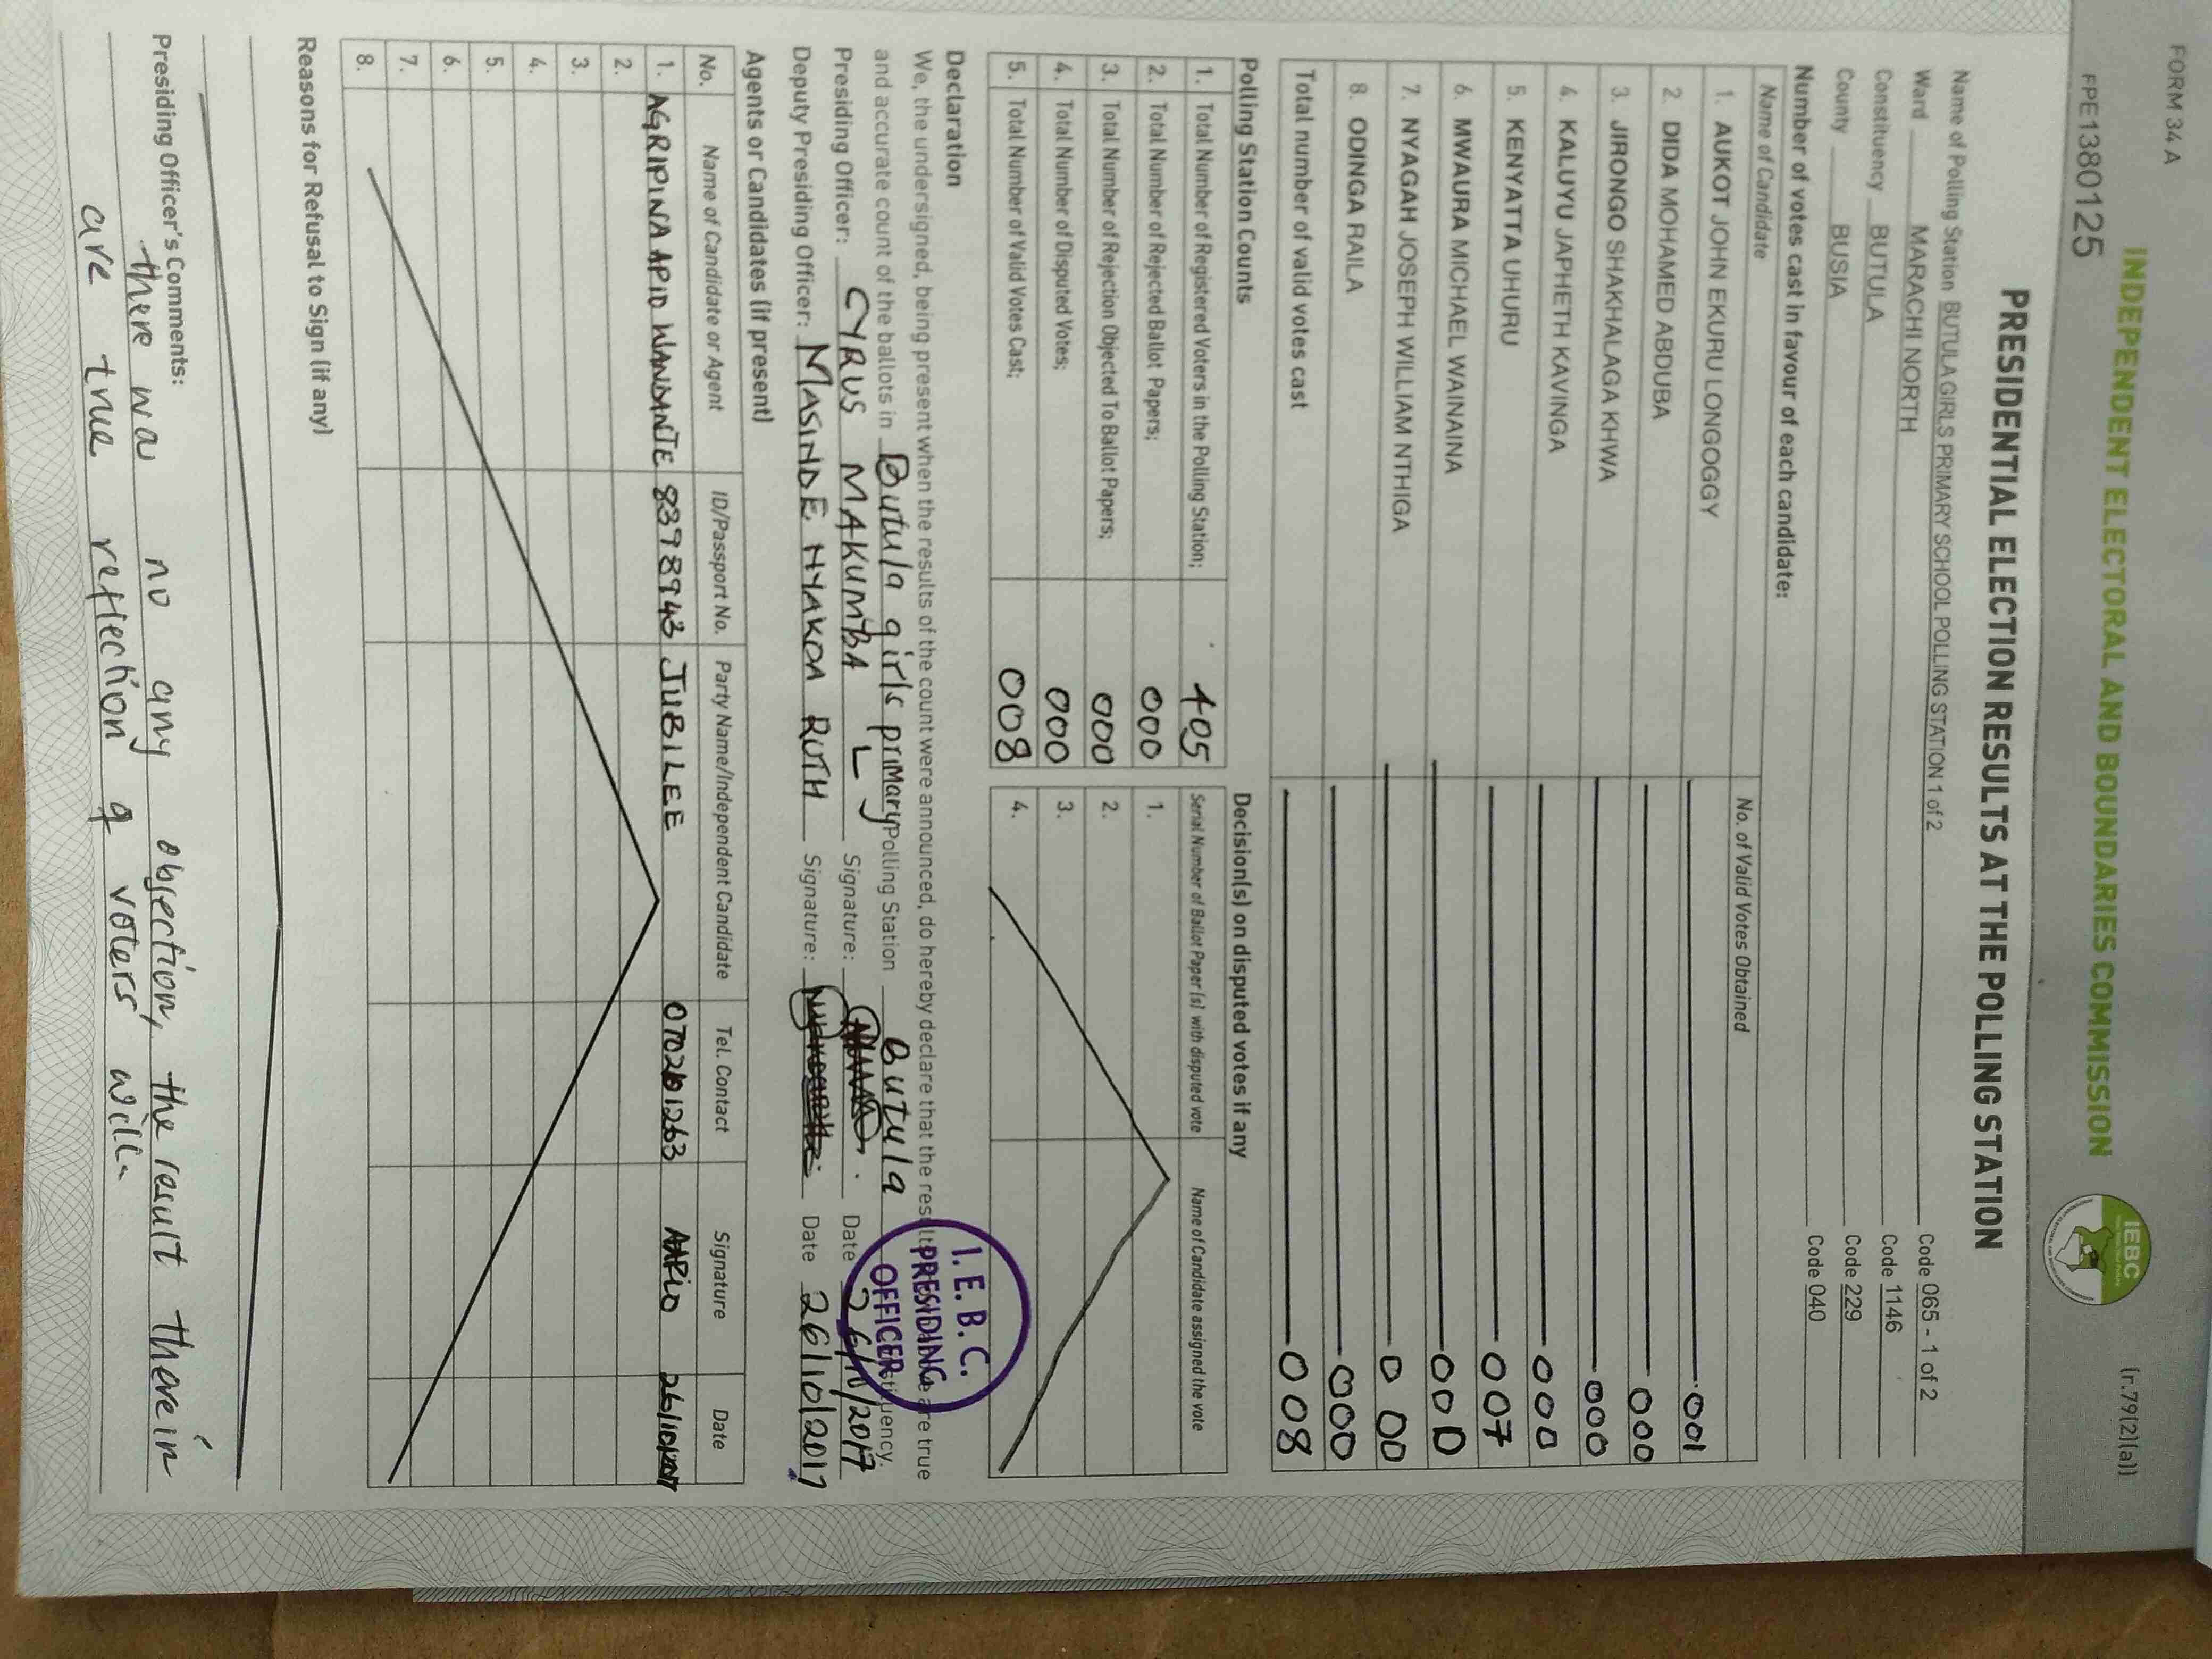 FORM 34 A
(r.79(2)(a))
INDEPENDENT ELECTORAL AND BOUNDARIES COMMISSION
FPE1380125
IEBC
PRESIDENTIAL ELECTION RESULTS AT THE POLLING STATION
Name of Polling Station BUTULA GIRLS PRIMARY SCHOOL POLLING STATION 1 of 2 Code 065 - 1 of 2
Ward MARACHI NORTH Code 1146
Constituency BUTULA Code 229
County BUSIA Code 040
Number of votes cast in favour of each candidate:
Name of Candidate No. of Valid Votes Obtained
1. AUKOT JOHN EKURU LONGOGGY 001
2. DIDA MOHAMED ABDUBA 000
3. JIRONGO SHAKHALAGA KHWA 000
4. KALUYU JAPHETH KAVINGA 000
5. KENYATTA UHURU 007
6. MWAURA MICHAEL WAINAINA 000
7. NYAGAH JOSEPH WILLIAM NTHIGA 000
8. ODINGA RAILA 000
Total number of valid votes cast 008
Polling Station Counts
1. Total Number of Registered Voters in the Polling Station; 405
2. Total Number of Rejected Ballot Papers; 000
3. Total Number of Rejection Objected To Ballot Papers; 000
4. Total Number of Disputed Votes; 000
5. Total Number of Valid Votes Cast; 008
Decision(s) on disputed votes if any
Serial Number of Ballot Paper (s) with disputed vote Name of Candidate assigned the vote
1.
2.
3.
4.
Declaration
We, the undersigned, being present when the results of the count were announced, do hereby declare that the results above are true
and accurate count of the ballots in Butula girls primary Polling Station Butula Constituency.
Presiding Officer: CYRUS MAKUMBA L Signature: Date 26/10/2017
Deputy Presiding Officer: MASINDE NYAKOA RUTH Signature: Date 26/10/2017
I. E. B. C.
PRESIDING
OFFICER
Agents or Candidates (if present)
No. Name of Candidate or Agent ID/Passport No. Party Name/Independent Candidate Tel. Contact Signature Date
1. AGRIPINA APIO WANDANTE 8378943 JUBILEE 070261263 AAPIO 26/10/2017
2.
3.
4.
5.
6.
7.
8.
Reasons for Refusal to Sign (if any)
Presiding Officer's Comments:
there wa no any objection, the result therein
are true reflection of voters will.